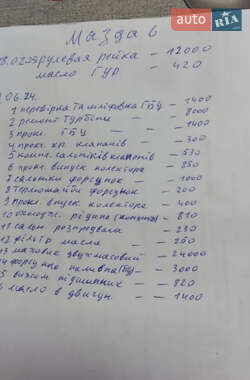 AUTO.RIA
Мазда 6
8.02 рулевая рейка — 12000
масло ГУР — 420
.06.24.
1 перевірка та шліфовка ГБЦ — 1400
2 ремонт турбіни — 8000
3 прокл. ГБЦ — 1400
4 прокл. кр. клапанів — 300
5 компл. сальників клапонів — 530
6 прокл. випуск колектора — 250
7 сальники форсунок — 1000
8 термошайби форсунок — 200
9 прокл. впуск колектора — 400
10 охолодж. рідина — 810
11 сальн. розпредвала — 230
12 фільтр масла — 260
13 маховик двухмасовий — 24000
14 форсунка наливна — 3000
5 вижим. підшипник — 820
6 масло в двигун. — 1400